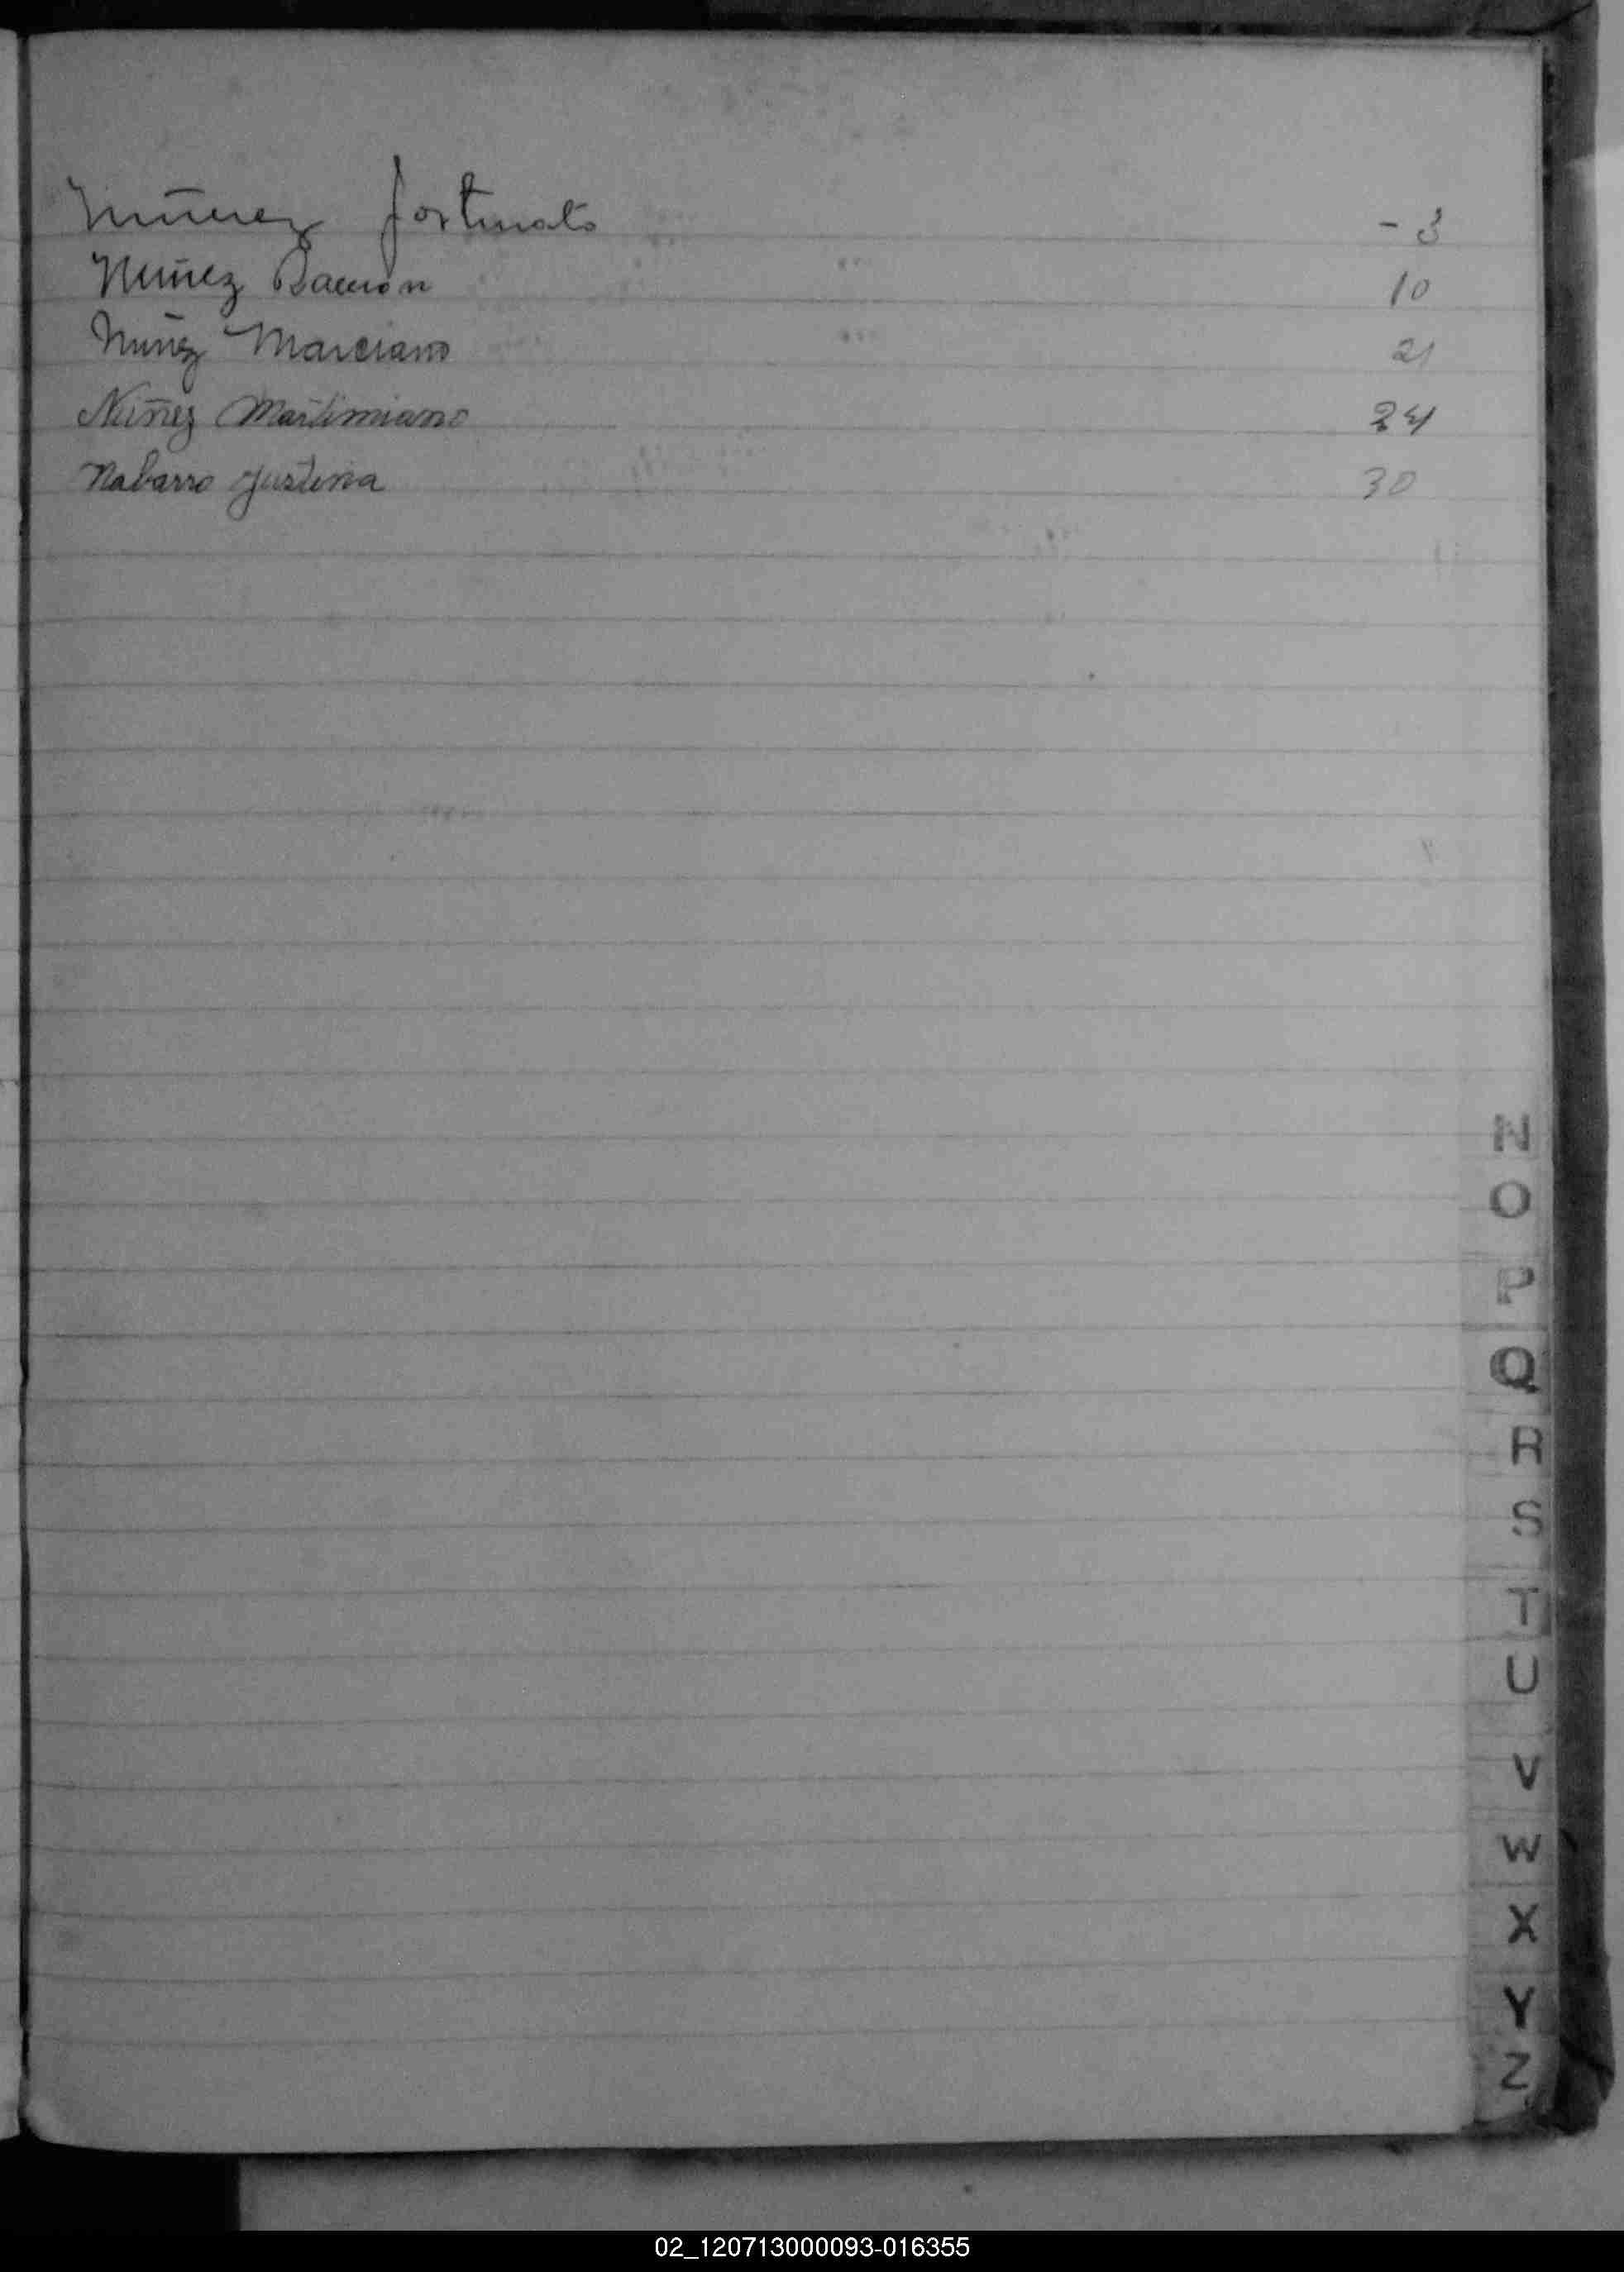 Nuñez fortunato - 3
Nuñez Ramón 10
Nuñez Marciano 21
Nuñez Maximiano 24
Nabarro Justina 30
N
O
P
Q
R
S
T
U
V
W
X
Y
Z
02_120713000093-016355